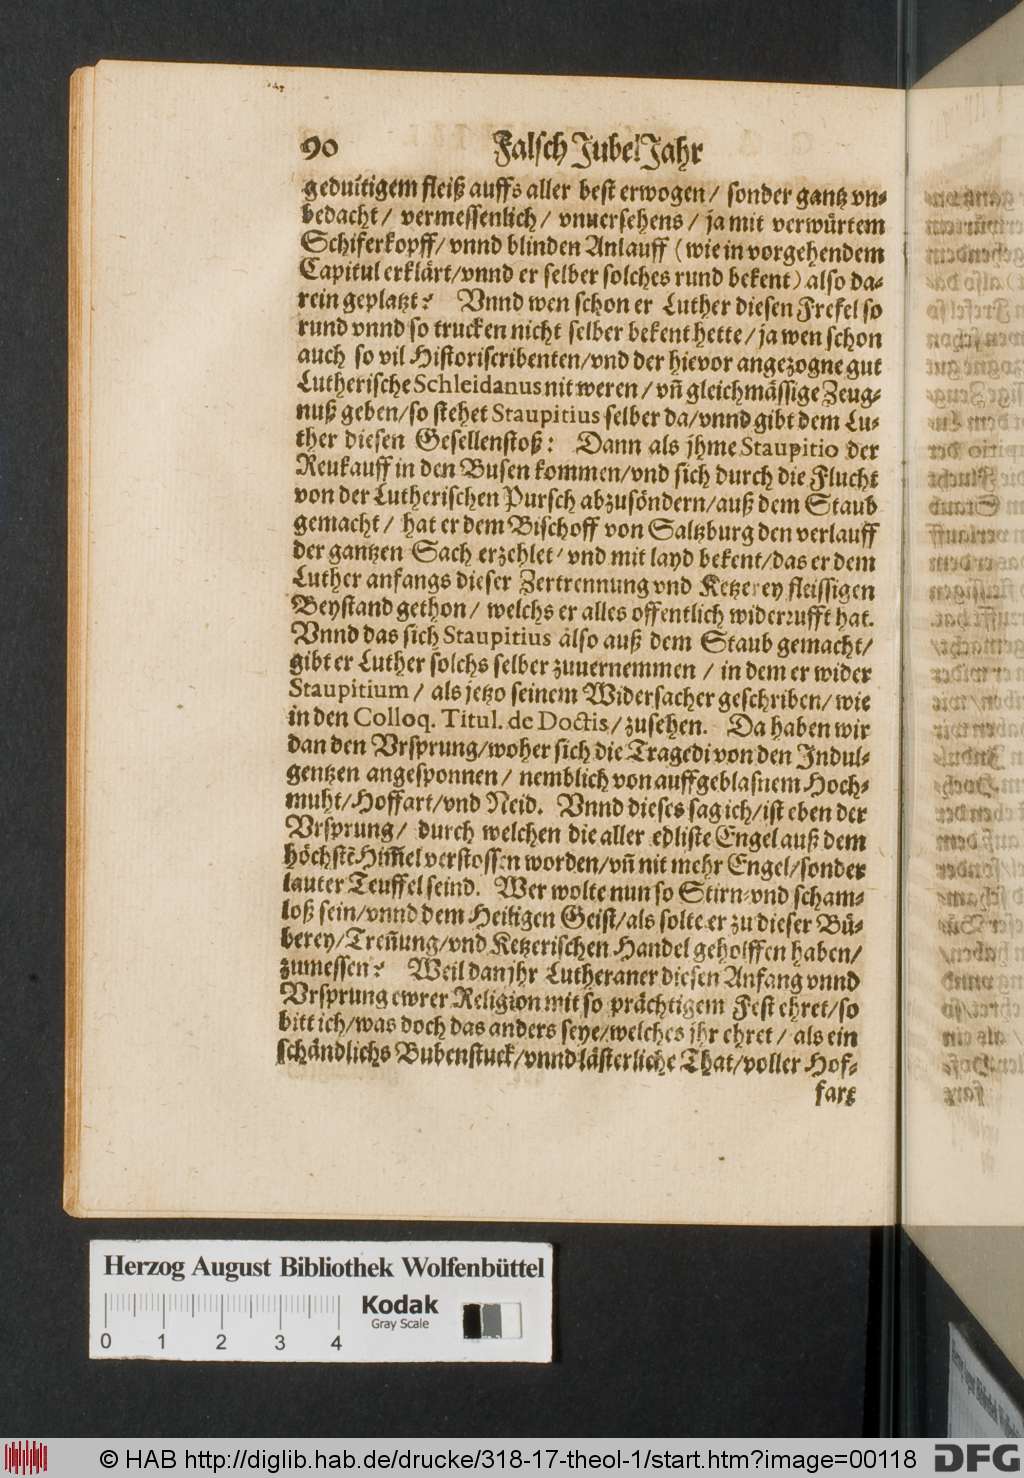 90 Falsch JubelJahr
gedultigem fleiß auffs aller best erwogen / sonder gantz vn-
bedacht / vermessenlich / vnuersehens / ja mit verwürtem
Schiferkopff / vnnd blinden Anlauff (wie in vorgehendem
Capitul erklärt / vnnd er selber solches rund bekent) also da-
rein geplatzt? Vnnd wen schon er Luther diesen Frefel so
rund vnnd so trucken nicht selber bekent hette / ja wen schon
auch so vil Historiscribenten / vnd der hievor angezogne gut
Lutherische Schleidanus nit weren / vñ gleichmässige Zeug-
nuß geben / so stehet Staupitius selber da / vnnd gibt dem Lu-
ther diesen Gesellenstoß: Dann als jhme Staupitio der
Reukauff in den Busen kommen / vnd sich durch die Flucht
von der Lutherischen Pursch abzusöndern / auß dem Staub
gemacht / hat er dem Bischoff von Saltzburg den verlauff
der gantzen Sach erzehlet / vnd mit layd bekent / das er dem
Luther anfangs dieser Zertrennung vnd Ketzerey fleissigen
Beystand gethon / welchs er alles offentlich widerrufft hat.
Vnnd das sich Staupitius also auß dem Staub gemacht /
gibt er Luther solchs selber zuuernemmen / in dem er wider
Staupitium / als jetzo seinem Widersacher geschriben / wie
in den Colloq. Titul. de Doctis / zusehen. Da haben wir
dan den Vrsprung / woher sich die Tragedi von den Indul-
gentzen angesponnen / nemblich von auffgeblasnem Hoch-
muht / Hoffart / vnd Neid. Vnnd dieses sag ich / ist eben der
Vrsprung / durch welchen die aller edliste Engel auß dem
höchstē Him̃el verstossen worden / vñ nit mehr Engel / sonder
lauter Teuffel seind. Wer wolte nun so Stirn- vnd scham-
loß sein / vnnd dem Heiligen Geist / als solte er zu dieser Bü-
berey / Treñung / vnd Ketzerischen Handel geholffen haben /
zumessen? Weil dan jhr Lutheraner diesen Anfang vnnd
Vrsprung ewrer Religion mit so prächtigem Fest ehret / so
bitt ich / was doch das anders seye / welches jhr ehret / als ein
schändlichs Bubenstuck / vnnd lästerliche That / voller Hof-
fart
Herzog August Bibliothek Wolfenbüttel
Kodak
Gray Scale
0 1 2 3 4
© HAB http://diglib.hab.de/drucke/318-17-theol-1/start.htm?image=00118
DFG